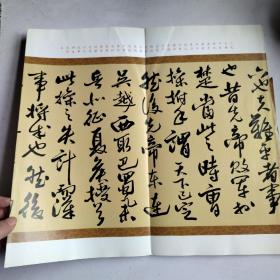 六也夫難平者事
也昔先帝敗軍於
楚當此之時曹
操拊手謂天下已定
然後先帝東連
吳越西取巴蜀舉
兵北征夏侯授首
此操之失計而漢
事將成也然後